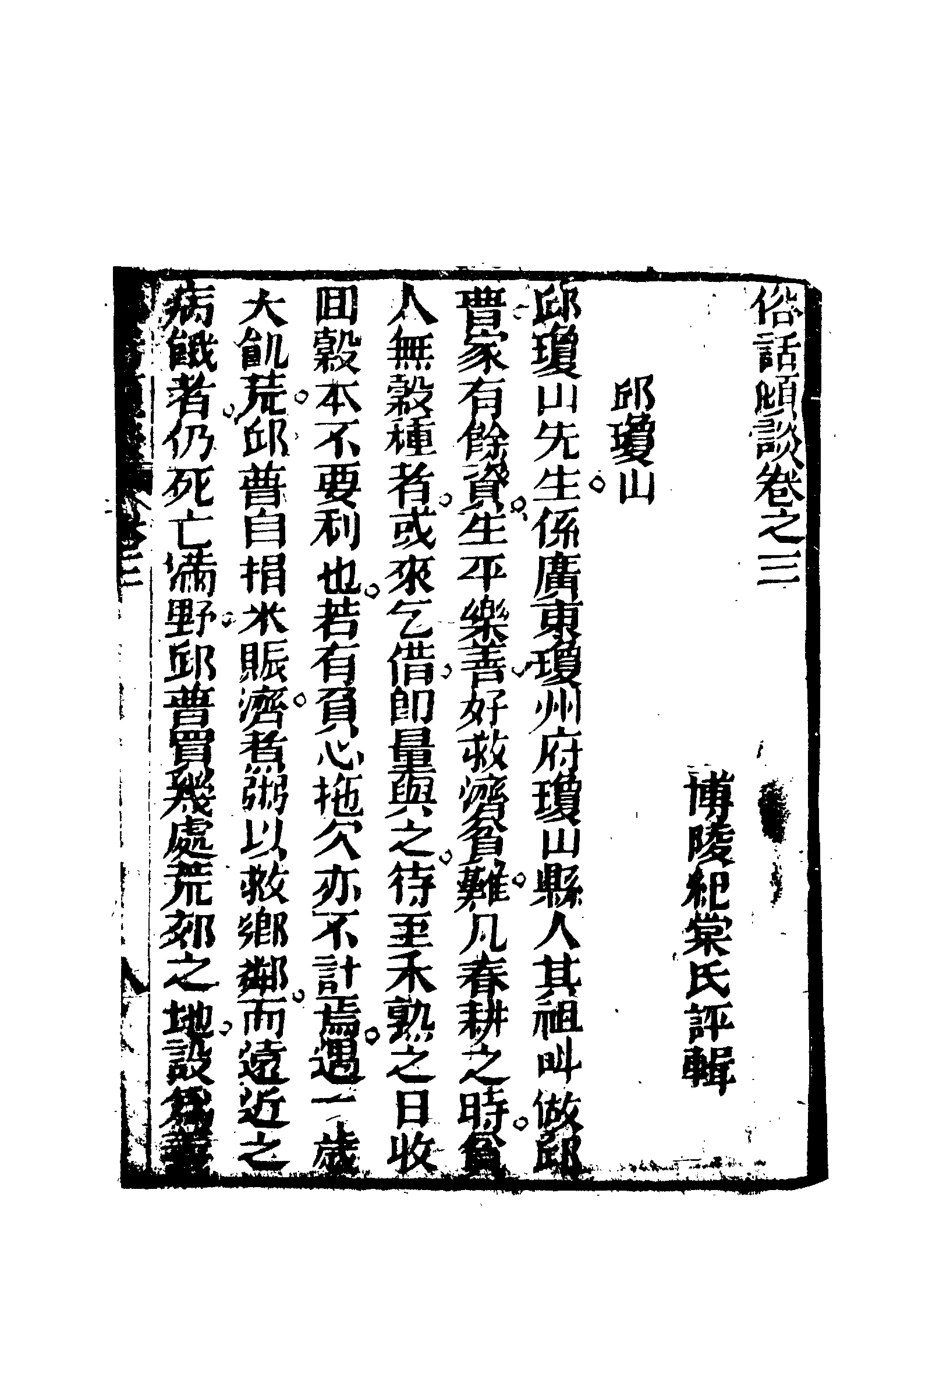 俗話傾談卷之三
博陵紀棠氏評輯
邱瓊山
邱瓊山先生。係廣東瓊州府瓊山縣人其祖叫做邱
普家有餘資。生平樂善。好救濟貧難。凡春耕之時。貧
人無穀種者。或來乞借。卽量與之。待至禾熟之日收
囬穀本不要利也。若有負心拖欠亦不計焉。遇一歲
大飢荒。邱普自捐米賑濟。煮粥以救鄉鄰。而遠近之
病餓者。仍死亡滿野。邱普買幾處荒郊之地。設爲義